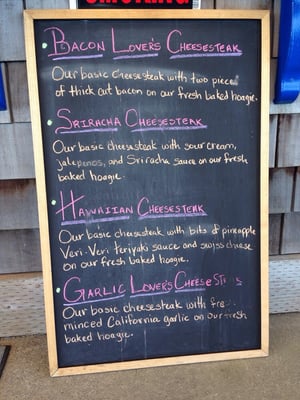 Bacon Lover's Cheesesteak
Our basic cheesesteak with two piece
of thick cut bacon on our fresh baked hoagie.
Sriracha Cheesesteak
Our basic cheesesteak with sour cream,
jalepenos, and Sriracha sauce on our fresh
baked hoagie.
Hawaiian Cheesesteak
Our basic cheesesteak with bits of pineapple
Veri-Veri teriyaki sauce and swiss cheese
on our fresh baked hoagie.
Garlic Lover's Cheese
Our basic cheesesteak with
minced California garlic on our fresh
baked hoagie.